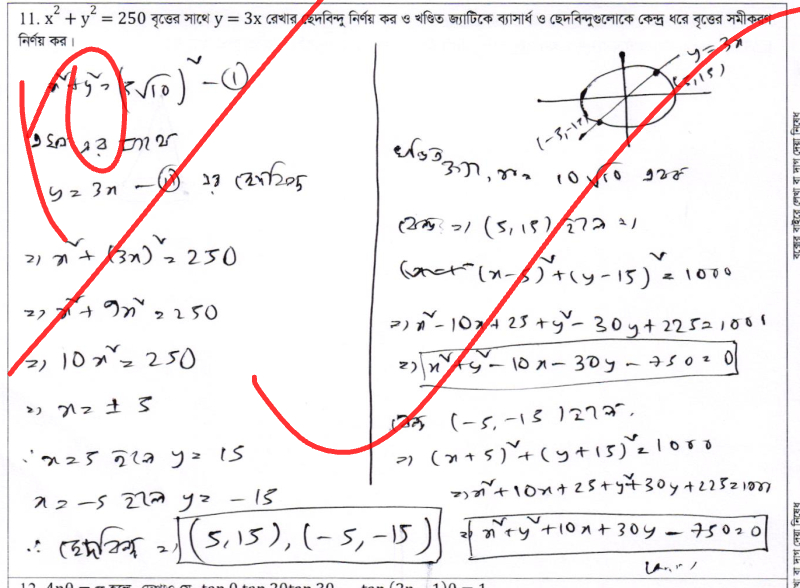 11. x² + y² = 250 বৃত্তের সাথে y = 3x রেখার ছেদবিন্দু নির্ণয় কর ও খণ্ডিত জ্যাটিকে ব্যাসার্ধ ও ছেদবিন্দুগুলোকে কেন্দ্র ধরে বৃত্তের সমীকরণ
নির্ণয় কর।
x² + y² = (5√10)² — ①
এর সাথে
y = 3x — ⑪ এর ছেদবিন্দু
⇒ x² + (3x)² = 250
⇒ x² + 9x² = 250
⇒ 10x² = 250
⇒ x = ± 5
∴ x = 5 হলে y = 15
x = -5 হলে y = -15
∴ ছেদবিন্দু ⇒ (5, 15), (-5, -15)
y = 3x
(5, 15)
খণ্ডিত জ্যা, r = 10√10 একক
কেন্দ্র ⇒ (5, 15) হলে ⇒
(x-5)² + (y-15)² = 1000
⇒ x² - 10x + 25 + y² - 30y + 225 = 1000
⇒ x² + y² - 10x - 30y - 750 = 0
কেন্দ্র (-5, -15) হলে,
⇒ (x+5)² + (y+15)² = 1000
⇒ x² + 10x + 25 + y² + 30y + 225 = 1000
⇒ x² + y² + 10x + 30y - 750 = 0
(Ans.)